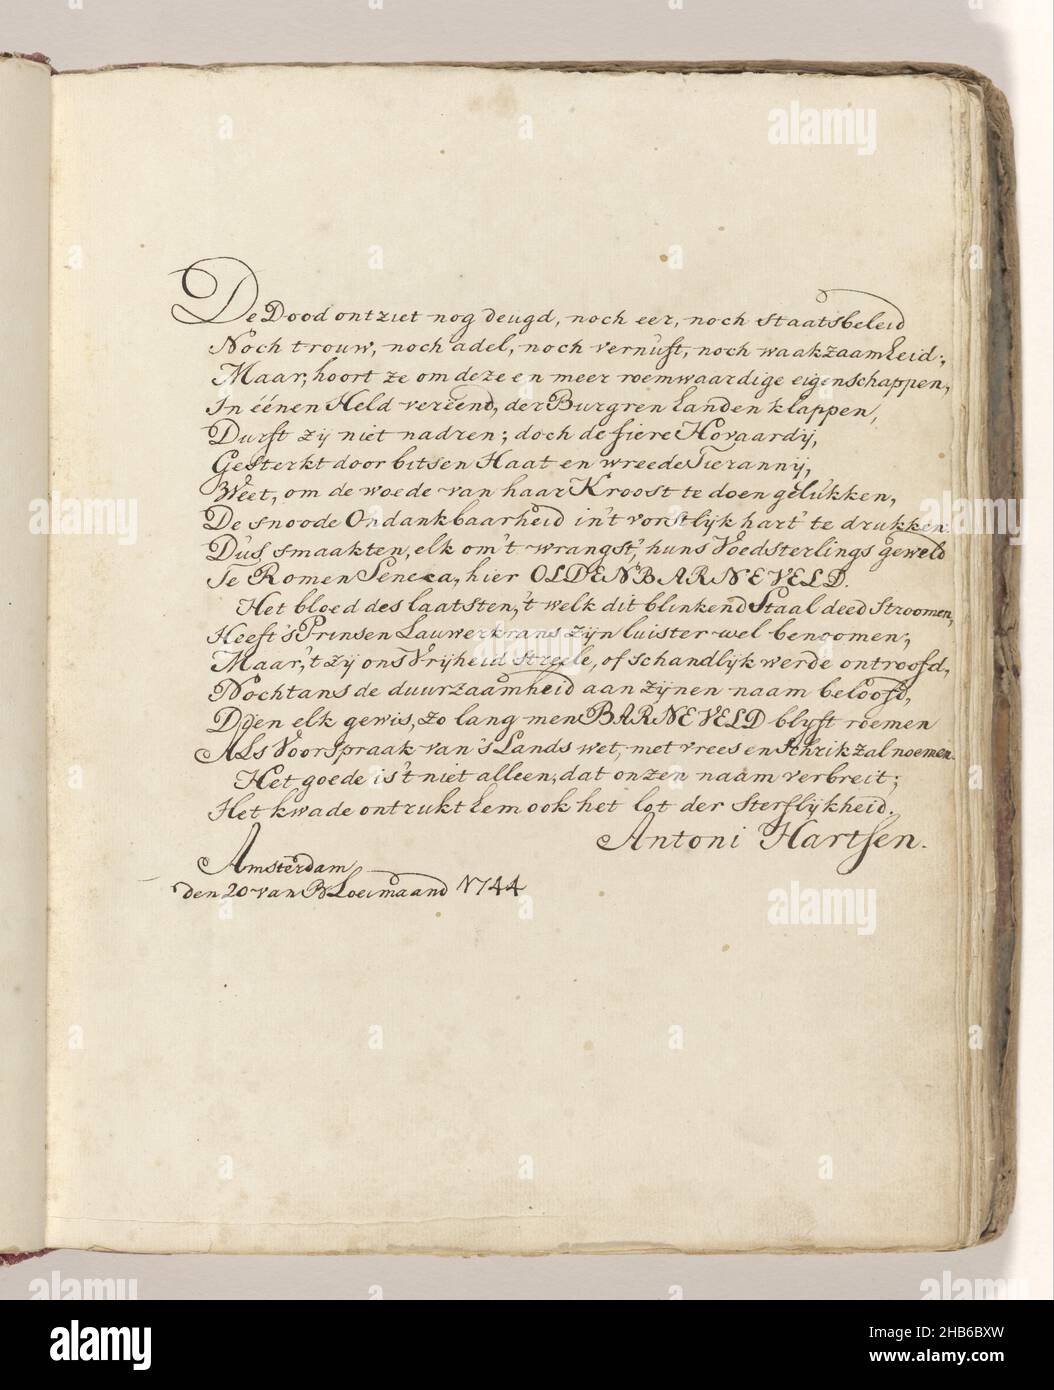 De Dood ontziet nog deugd, noch eer, noch staatsbeleid
Noch trouw, noch adel, noch vernuft, noch waakzaamheid;
Maar, hoort ze om deze en meer roemwaardige eigenschappen,
In éénen Held vereend, der Burgren handen klappen,
Durft zij niet nadren; doch de fiere Hovaardij,
Gesterkt door bitsen Haat en wreede Tierannij,
Weet, om de woede van haar Kroost te doen gelukken,
De snoode Ondankbaarheid in't vorstlijk hart te drukken.
Dus smaakten, elk om't wrangst, huns Voedsterlings geweld
Te Romen Seneca, hier OLDENBARNEVELD.
Het bloed des laatsten, 't welk dit blinkend Staal deed stroomen,
Heeft 's Prinsen Lauwerkrans zijn luister wel benoomen;
Maar, 't zij ons Vrijheid streele, of schandlijk werde ontroofd,
Nochtans de duurzaamheid aan zijnen naam beloofd,
Dien elk gewis, zo lang men BARNEVELD blijft roemen
Als Voorspraak van 's Lands wet, met vrees en schrik zal noemen.
Het goede is't niet alleen, dat onzen naam verbreit;
Het kwade ontrukt hem ook het lot der sterflijkheid.
Antoni Hartsen.
Amsterdam
den 20 van Bloeimaand 1744
alamy
Image ID: 2HB6BXW
www.alamy.com